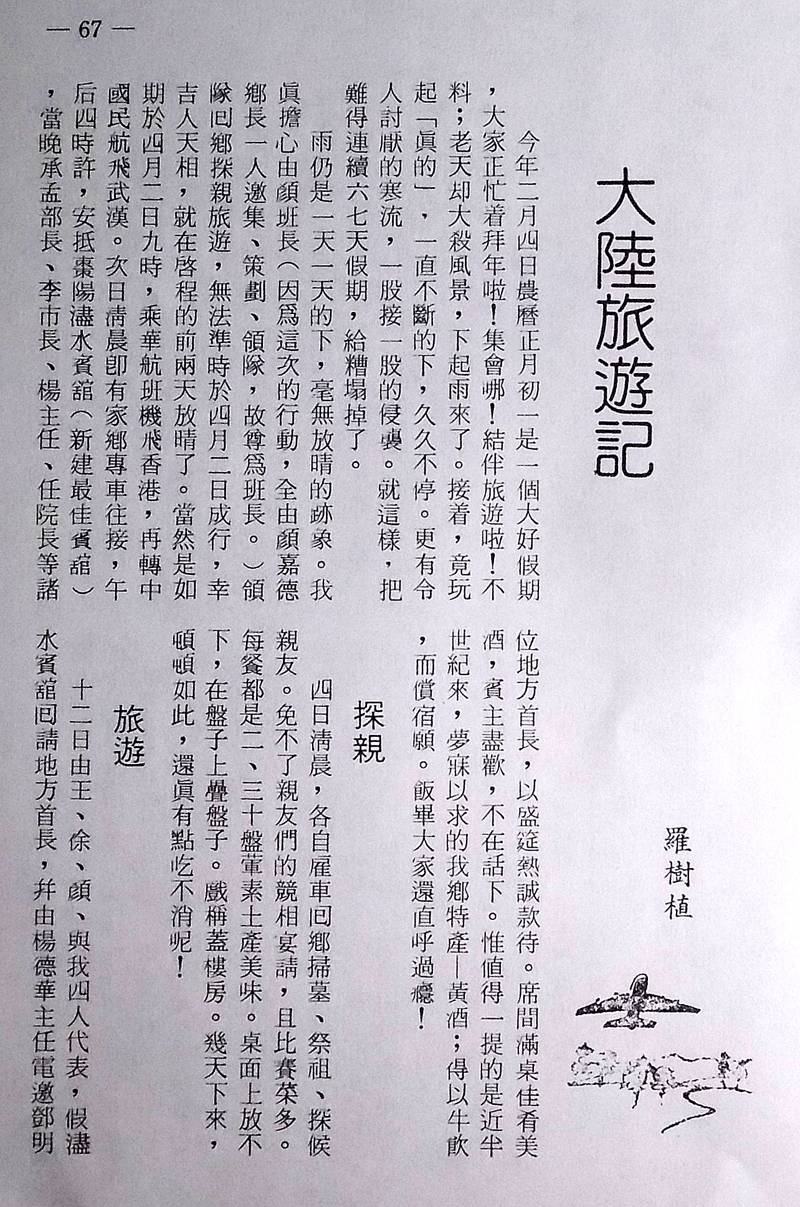 — 67 —
大陸旅遊記
羅樹植
今年二月四日農曆正月初一是一個大好假期
，大家正忙着拜年啦！集會哪！結伴旅遊啦！不
料；老天却大殺風景，下起雨來了。接着，竟玩
起「眞的」，一直不斷的下，久久不停。更有令
人討厭的寒流，一股接一股的侵襲。就這樣，把
難得連續六七天假期，給糟塌掉了。
雨仍是一天一天的下，毫無放晴的跡象。我
眞擔心由顏班長（因爲這次的行動，全由顏嘉德
鄉長一人邀集、策劃、領隊，故尊爲班長。）領
隊回鄉探親旅遊，無法準時於四月二日成行，幸
吉人天相，就在啓程的前兩天放晴了。當然是如
期於四月二日九時，乘華航班機飛香港，再轉中
國民航飛武漢。次日清晨卽有家鄉專車往接，午
后四時許，安抵棗陽濜水賓舘（新建最佳賓舘）
，當晚承孟部長、李市長、楊主任、任院長等諸
位地方首長，以盛筵熱誠款待。席間滿桌佳肴美
酒，賓主盡歡，不在話下。惟值得一提的是近半
世紀來，夢寐以求的我鄉特產—黃酒；得以牛飲
，而償宿願。飯畢大家還直呼過癮！
探親
四日清晨，各自雇車回鄉掃墓、祭祖、探候
親友。免不了親友們的競相宴請，且比賽菜多。
每餐都是二、三十盤葷素土產美味。桌面上放不
下，在盤子上疊盤子。戲稱蓋樓房。幾天下來，
頓頓如此，還眞有點吃不消呢！
旅遊
十二日由王、徐、顏、與我四人代表，假濜
水賓舘回請地方首長，幷由楊德華主任電邀鄧明